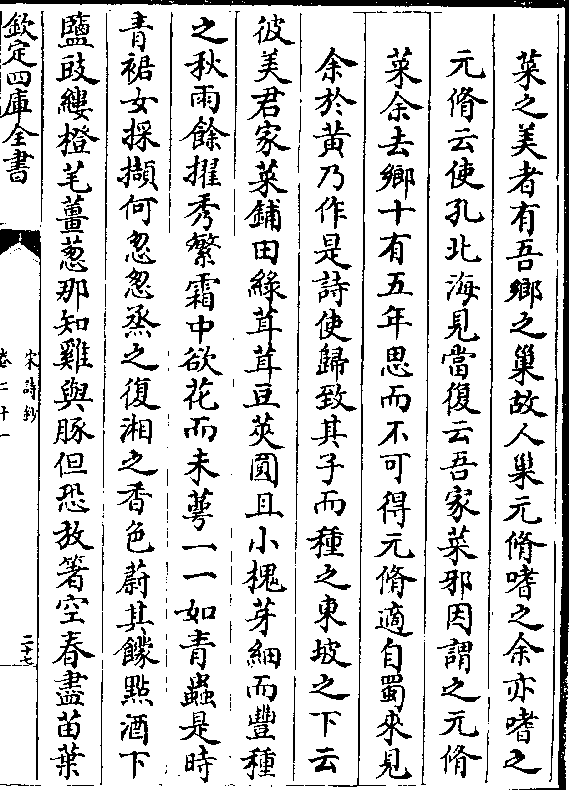 菜之美者有吾鄉之巢故人巢元脩嗜之余亦嗜之
元脩云使孔北海見當復云吾家菜邪因謂之元脩
菜余去鄉十有五年思而不可得元脩適自蜀來見
余於黃乃作是詩使歸致其子而種之東坡之下云
彼美君家菜鋪田綠茸茸豆莢圓且小槐芽細而豐種
之秋雨餘擢秀繁霜中欲花而未萼一一如青蟲是時
青裙女採擷何怱怱烝之復湘之香色蔚其饛點酒下
鹽豉縷橙芼薑葱那知雞與豚但恐放箸空春盡苗葉
欽定四庫全書
宋詩鈔
卷二十一
二十七